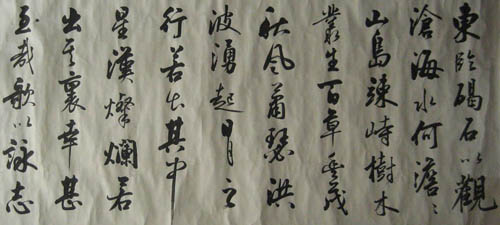 東臨碣石以觀
滄海水何澹〻
山島竦峙樹木
叢生百草豐茂
秋風蕭瑟洪
波湧起月之
行若出其中
星漢燦爛若
出其裏幸甚
至哉歌以詠志